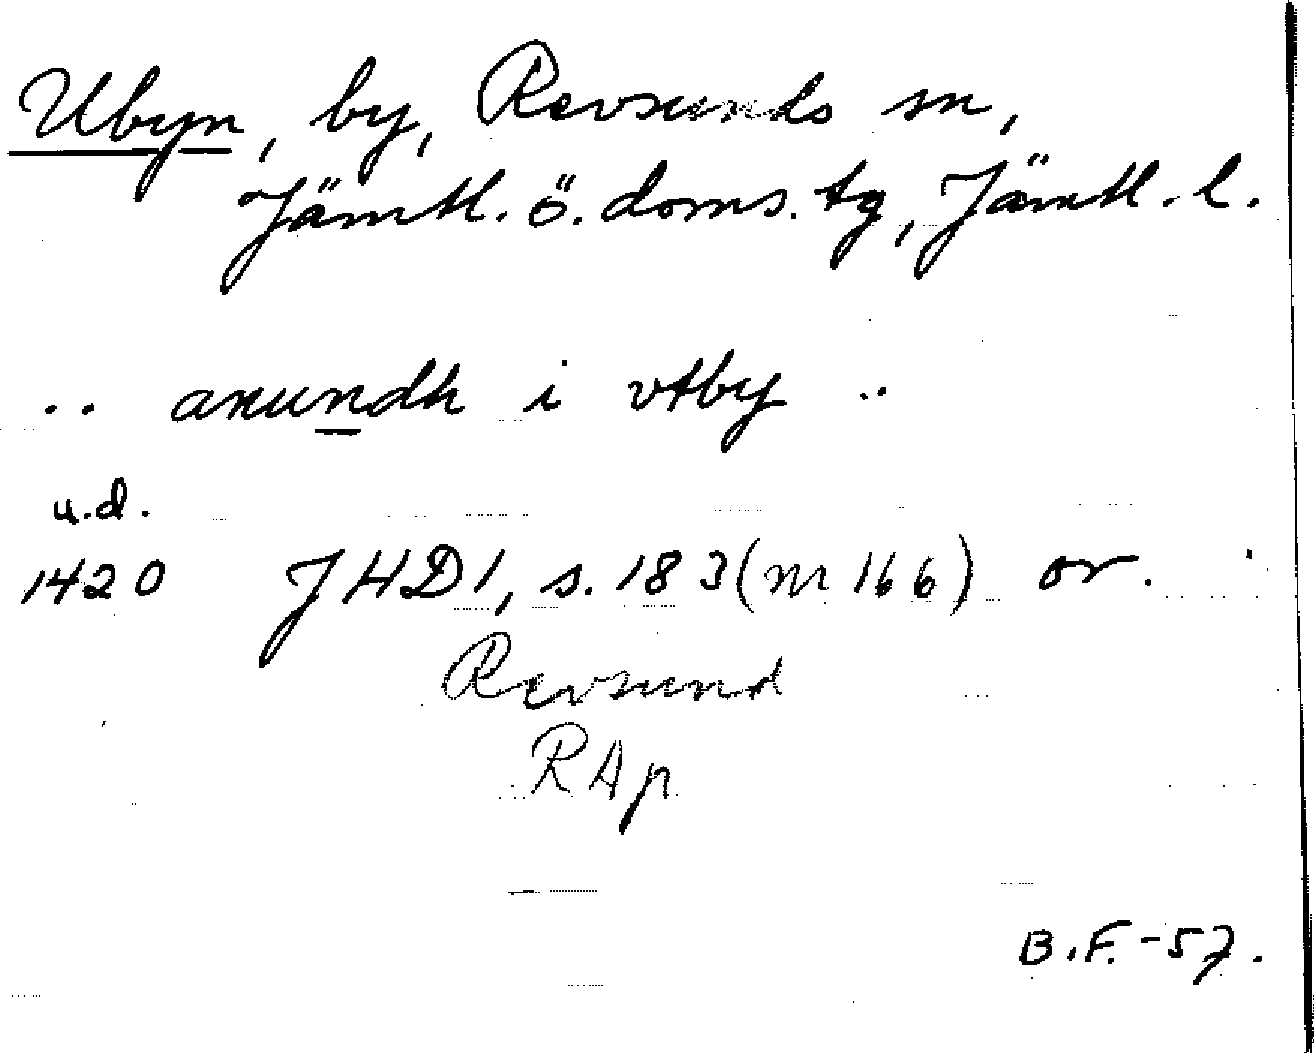 Ubyn, by, Revsunds sn,
Jämtl. ö. doms. tg, Jämtl. l.
.. anundh i vtby ..
u.d.
1420 JHD1, s. 183 (nr 166) or.
Revsund
RAp
B.F. -57.